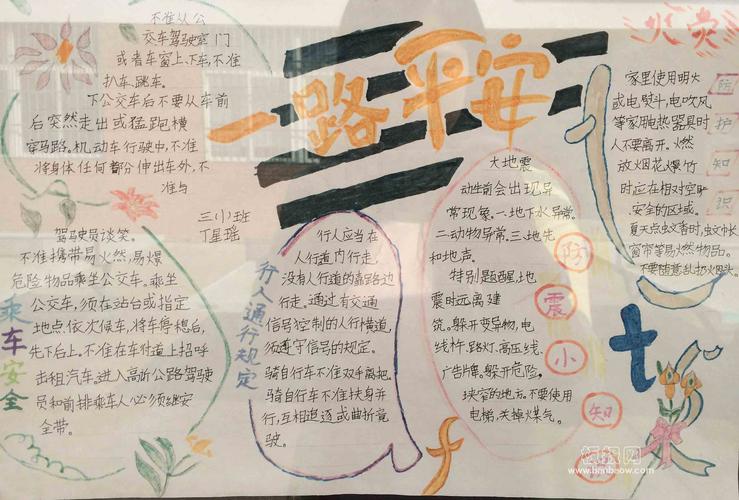 一路平安
不准从公
交车驾驶室门
或者车窗上、下车,不准
扒车、跳车。
下公交车后不要从车前
后突然走出或猛跑横
穿马路,机动车行驶中,不准
将身体任何部分伸出车外,不
准与
驾驶员谈笑。
不准携带易火然,易爆
危险物品乘坐公交车。乘坐
公交车,须在站台或指定
地点依次候车,将车停稳台,
先下后上。不准在车行道上招呼
出租汽车。进入高所公路驾驶
员和前排乘车人必须继安
全带。
乘车安全
三(小)班
丁星瑶
行人通行规定
行人应当在
人行道内行走,
没有人行道的靠路边
行走。通过有交通
信号控制的人行横道,
须遵守信号的规定。
骑自行车不准双手离把。
骑自行车不准扶身并
行,互相追逐或曲折竞
驶。
大地震
动坐前会出现异
常现象。一地下水异常。
二动物异常。三、地光
和地声。
特别题醒,地
震时远离建
筑。躲开变异物,电
线杵、路灯、高压线、
广告牌。躲开危险,
挟窄的地方。不要使用
电梯,关掉煤气。
防震小知
火灾
防护知识
家里使用明火
或电熨斗,电吹风
等家用电热器具时
人不要离开。燃
放烟花爆竹
时应在相对空旷
安全的区域。
夏天点蚊香时,蚊巾长
窗帘等易燃物品。
不要随意乱扔火因头。
板报网
www.banbaow.com